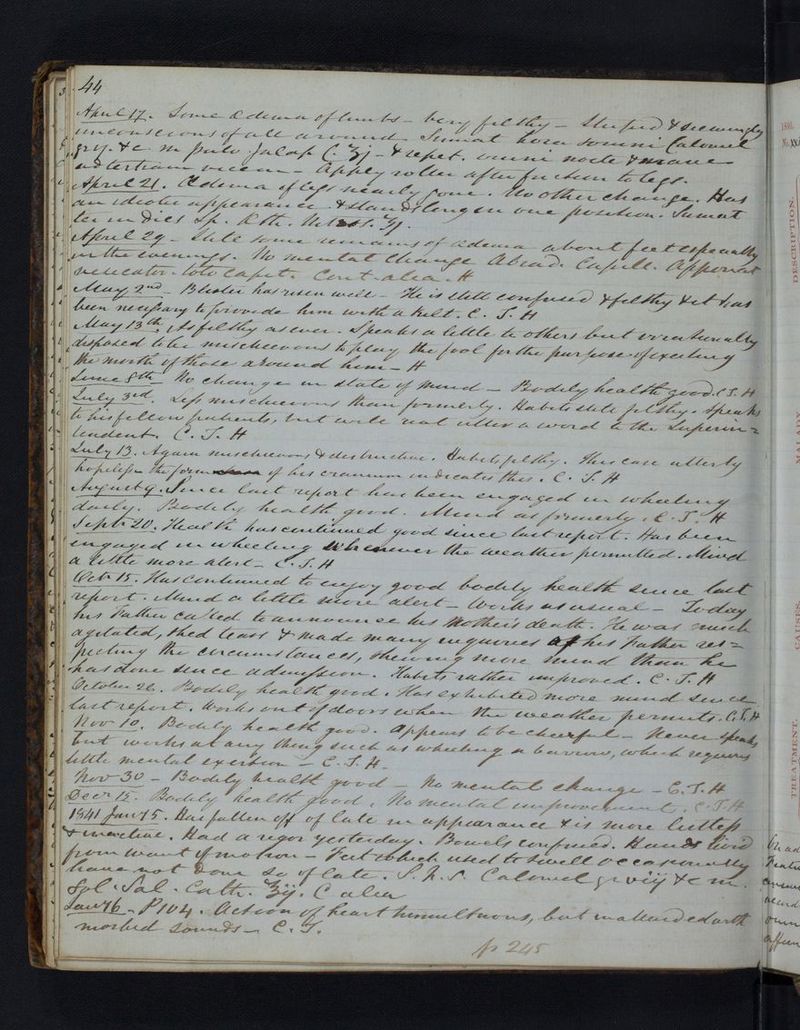 44
April 17. Some Œdema of limbs - very filthy - Stupid & seemingly
unconscious of all around. Sumat hora somni Calomel
gr y. & c m Pulv. Jalap C ʒj - & repet. omni nocte & mane
ad tertiam vicem - Apply roller after friction to legs.
April 21. Œdema of legs nearly gone. No other change. Has
an idiotic appearance & stands long in one position. Sumat
ter in dies Sp. Æth. Nit. ʒj.
April 29 - Still some remains of œdema about feet especially
in the evenings. No mental change Abrad. Capill. Apponat
vesicator. toto capiti. Cont. alia. H
May 2nd - Blister has risen well - He is still confused & filthy & it has
been necessary to provide him with a kilt. C. T. H
May 13th As filthy as ever. Speaks a little to others but occasionally
disposed to be mischievous & to play the fool for the purpose of exciting
the mirth of those around him - H
June 8th - No change in state of mind - Bodily health good. C T. H
July 3rd. Less mischievous than formerly. Habits still filthy. Speaks
to his fellow patients, but will not utter a word to the Superin=
tendent. C. T. H
July 13. Again mischievous & destructive. Habits filthy. This case utterly
hopeless the form of his cranium indicates this. C. T. H
August 9. Since last report has been engaged in wheeling
daily. Bodily health good. Mind as formerly. C. T. H
Septr 20. Health has continued good since last report. Has been
engaged in wheeling whenever the weather permitted. Mind
a little more alert - C. T. H
Octr 15. Has continued to enjoy good bodily health since last
report. Mind a little more alert - Works as usual - To day
his Father called to announce his Mother's death. He was much
agitated, shed tears & made many inquiries of his Father res=
pecting the circumstances, shewing more mind than he
has done since admission. Habits rather improved. C. T. H
October 26. Bodily health good. Has exhibited more mind since
last report. Works out of doors when the weather permits. C. T. H
Nov 10. Bodily health good. Appears to be cheerful - Never speaks,
but works at any thing such as wheeling a barrow, which requires
little mental exertion - C. T. H.
Nov 30 - Bodily health good - No mental change - C. T. H
Decr 15. Bodily health good. No mental improvement. C. T. H
1841 Jany 5. Has fallen off of late in appearance & is more listless
& inactive. Had a rigor yesterday. Bowels confined. Hands livid
from want of motion - Feet which used to swell occasionally
have not done so of late. Calomel gr viij & c m.
Sol. Sal. Cath. ʒij. C alia
Jany 6 - P 104. Action of heart tumultuous, but unattended with
morbid sounds - C. T.
p 245
DESCRIPTION.
MALADY.
CAUSES.
TREATMENT.